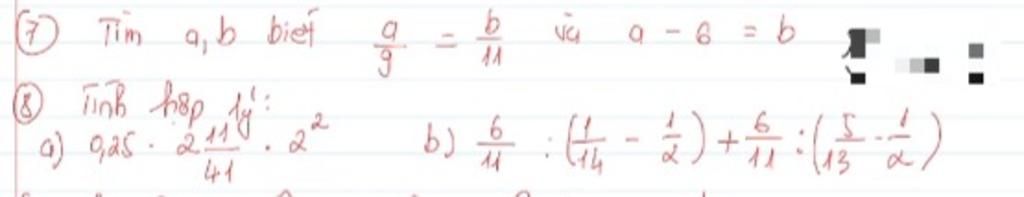 ⑦ Tìm a, b biết a/9 = b/11 và a - 6 = b
⑧ Tính hợp lý:
a) 0,25 . 2 11/41 . 2² b) 6/11 : (1/14 - 1/2) + 6/11 : (5/13 - 1/2)